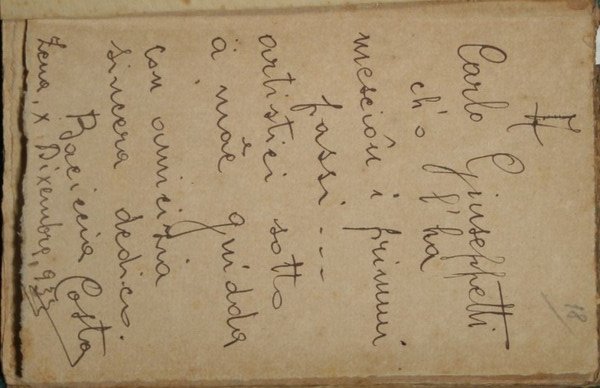 A
Carlo Giuseppetti
ch'o l'ha
mesciôu i primmi
passi...
artistici sotto
a mæ guidda
con amicizia
sincera dedico.
Baciccia Costa
Zena, X Dixembre, 933
18